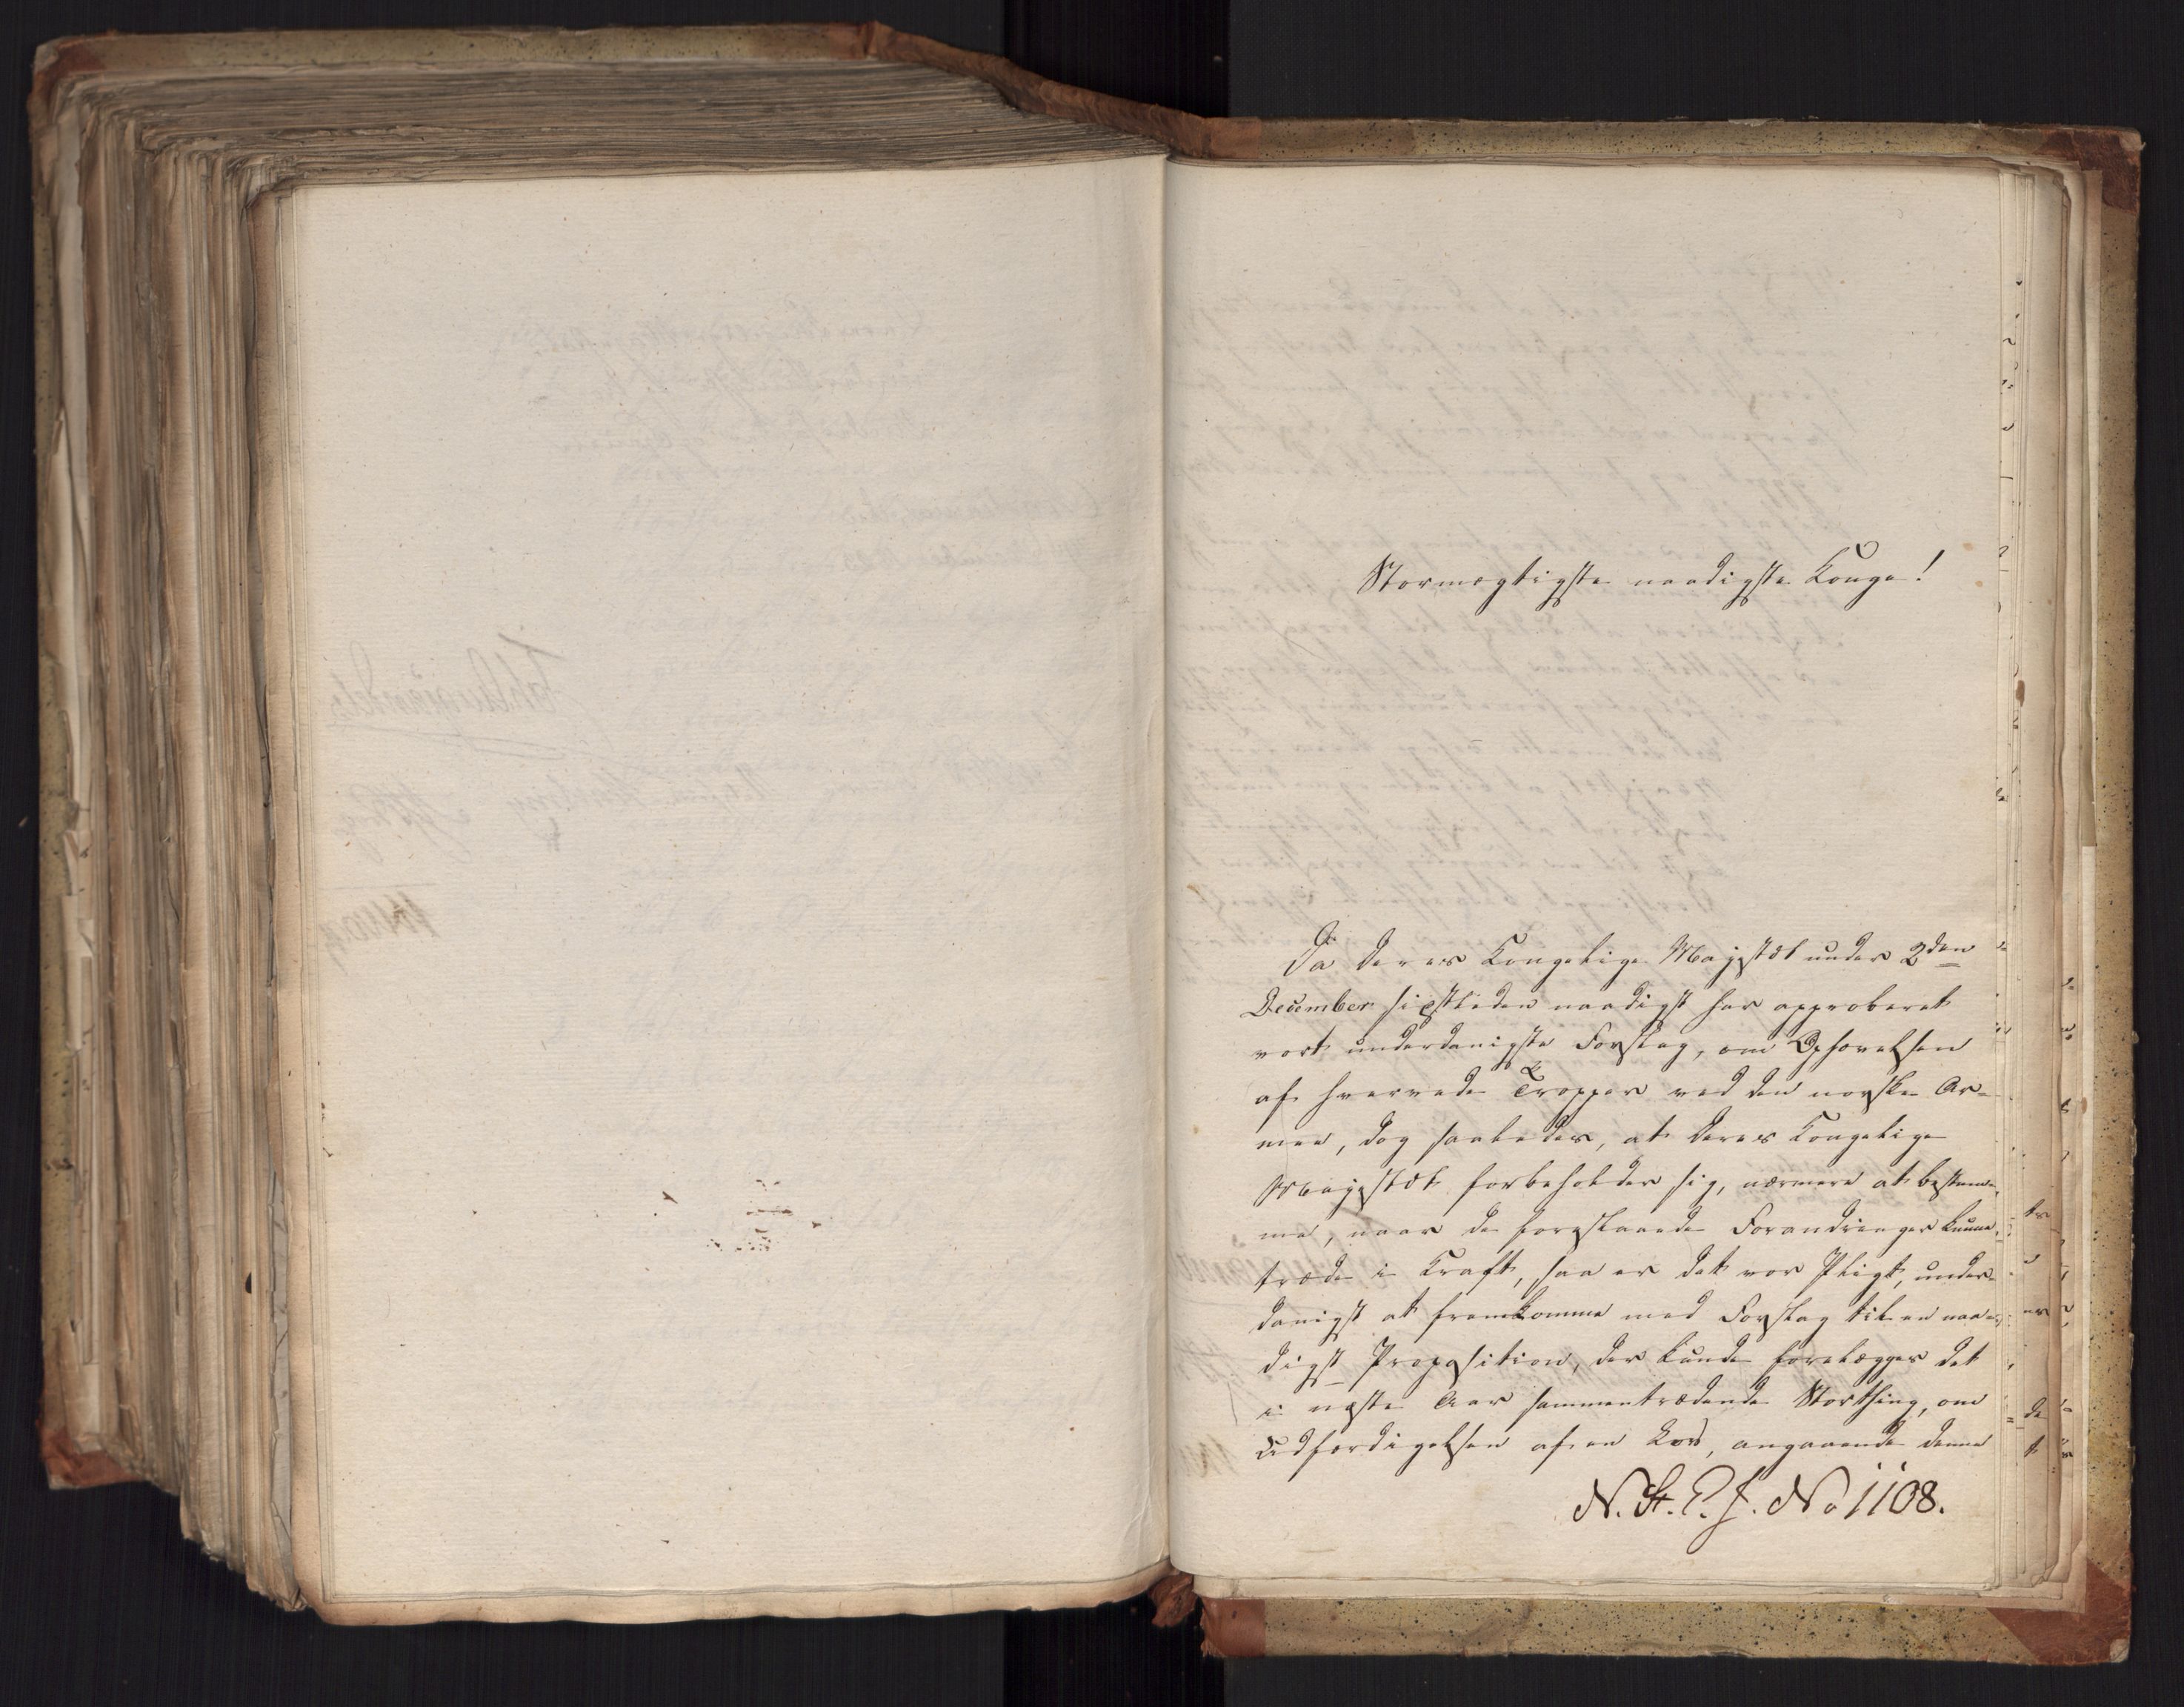 Stormægtigste naadigste Konge!
Da Deres Kongelige Majestæt under 2den
December sidstleden naadigst har approberet
vort underdanigste Forslag, om Ophævelsen
af hvervede Tropper ved den norske Ar-
mee, dog saaledes, at Deres Kongelige
Majestæt forbeholder sig, nærmere at bestem-
me, naar de foreslaaede Forandringer kunne
træde i Kraft, saa er det vor Pligt, under-
danigst at fremkomme med Forslag til en naa-
digst Proposition, der kunde forelægges det
i næste Aar sammentrædende Storthing, om
Udfærdigelsen af en Lov, angaaende denne
N. St. E. J. No 1108.